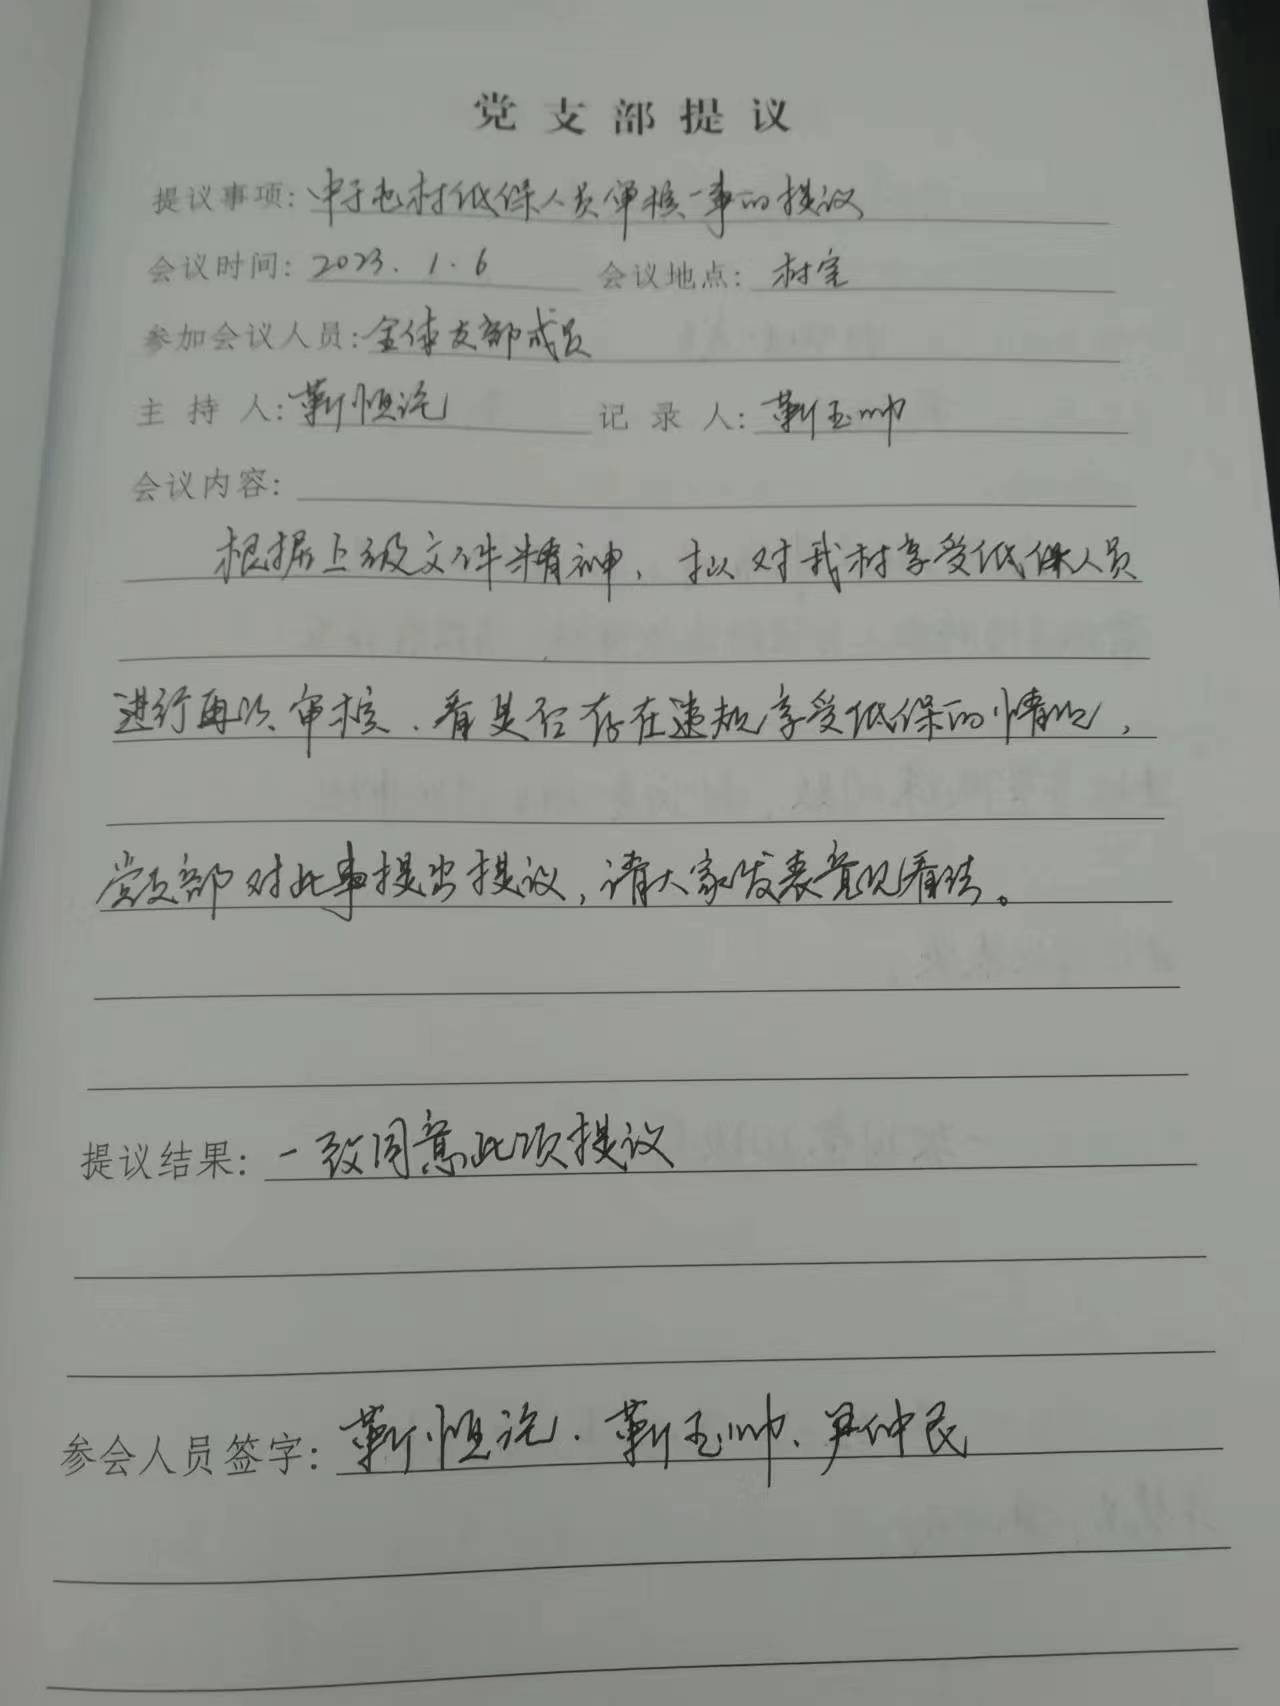 党支部提议
提议事项：中子屯村低保人员审核一事的提议
会议时间：2023.1.6 会议地点：村室
参加会议人员：全体支部成员
主持人：靳恒 记录人：靳玉帅
会议内容：
根据上级文件精神，拟对我村享受低保人员
进行再次审核、看是否存在违规享受低保的情况，
党支部对此事提出提议，请大家发表意见看法。
提议结果：一致同意此项提议
参会人员签字：靳恒、靳玉帅、尹仲民